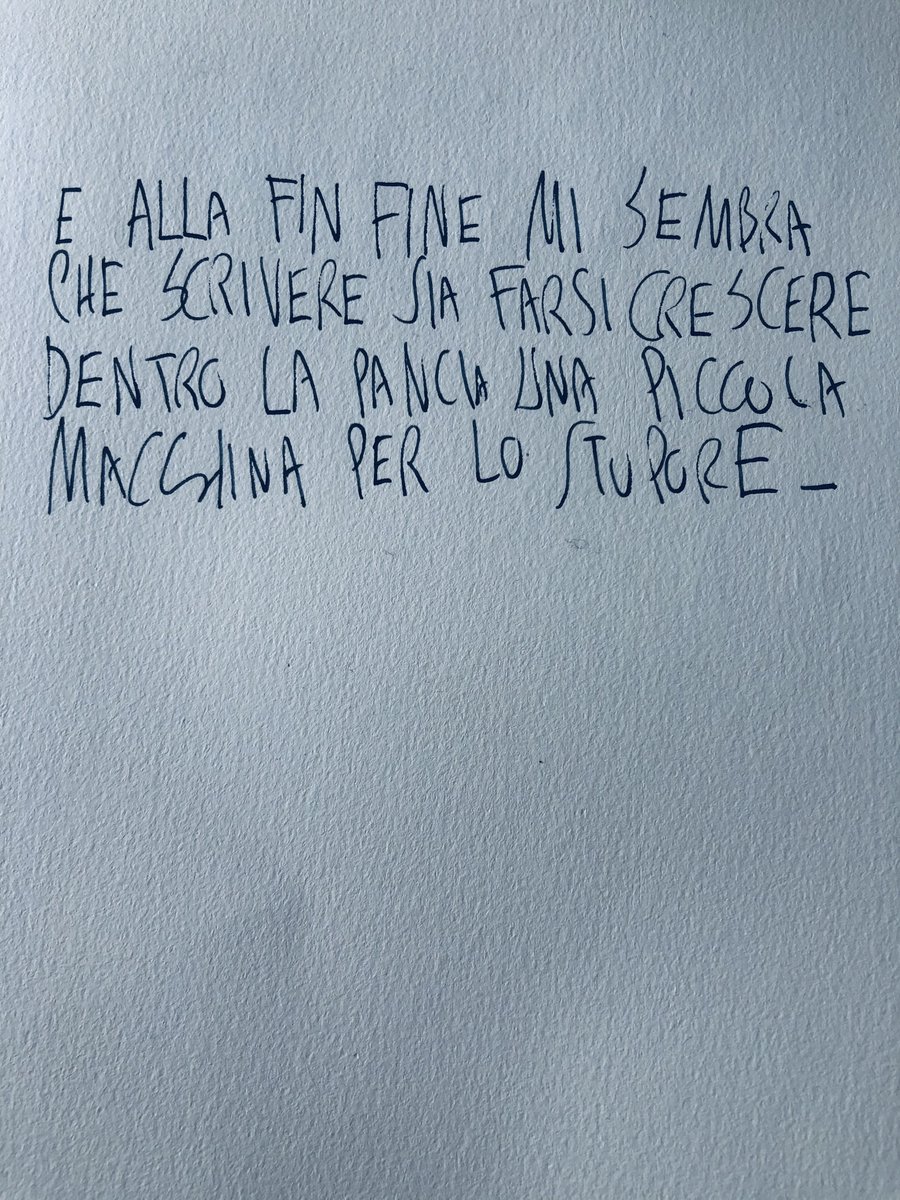 E ALLA FIN FINE MI SEMBRA
CHE SCRIVERE SIA FARSI CRESCERE
DENTRO LA PANCIA UNA PICCOLA
MACCHINA PER LO STUPORE _